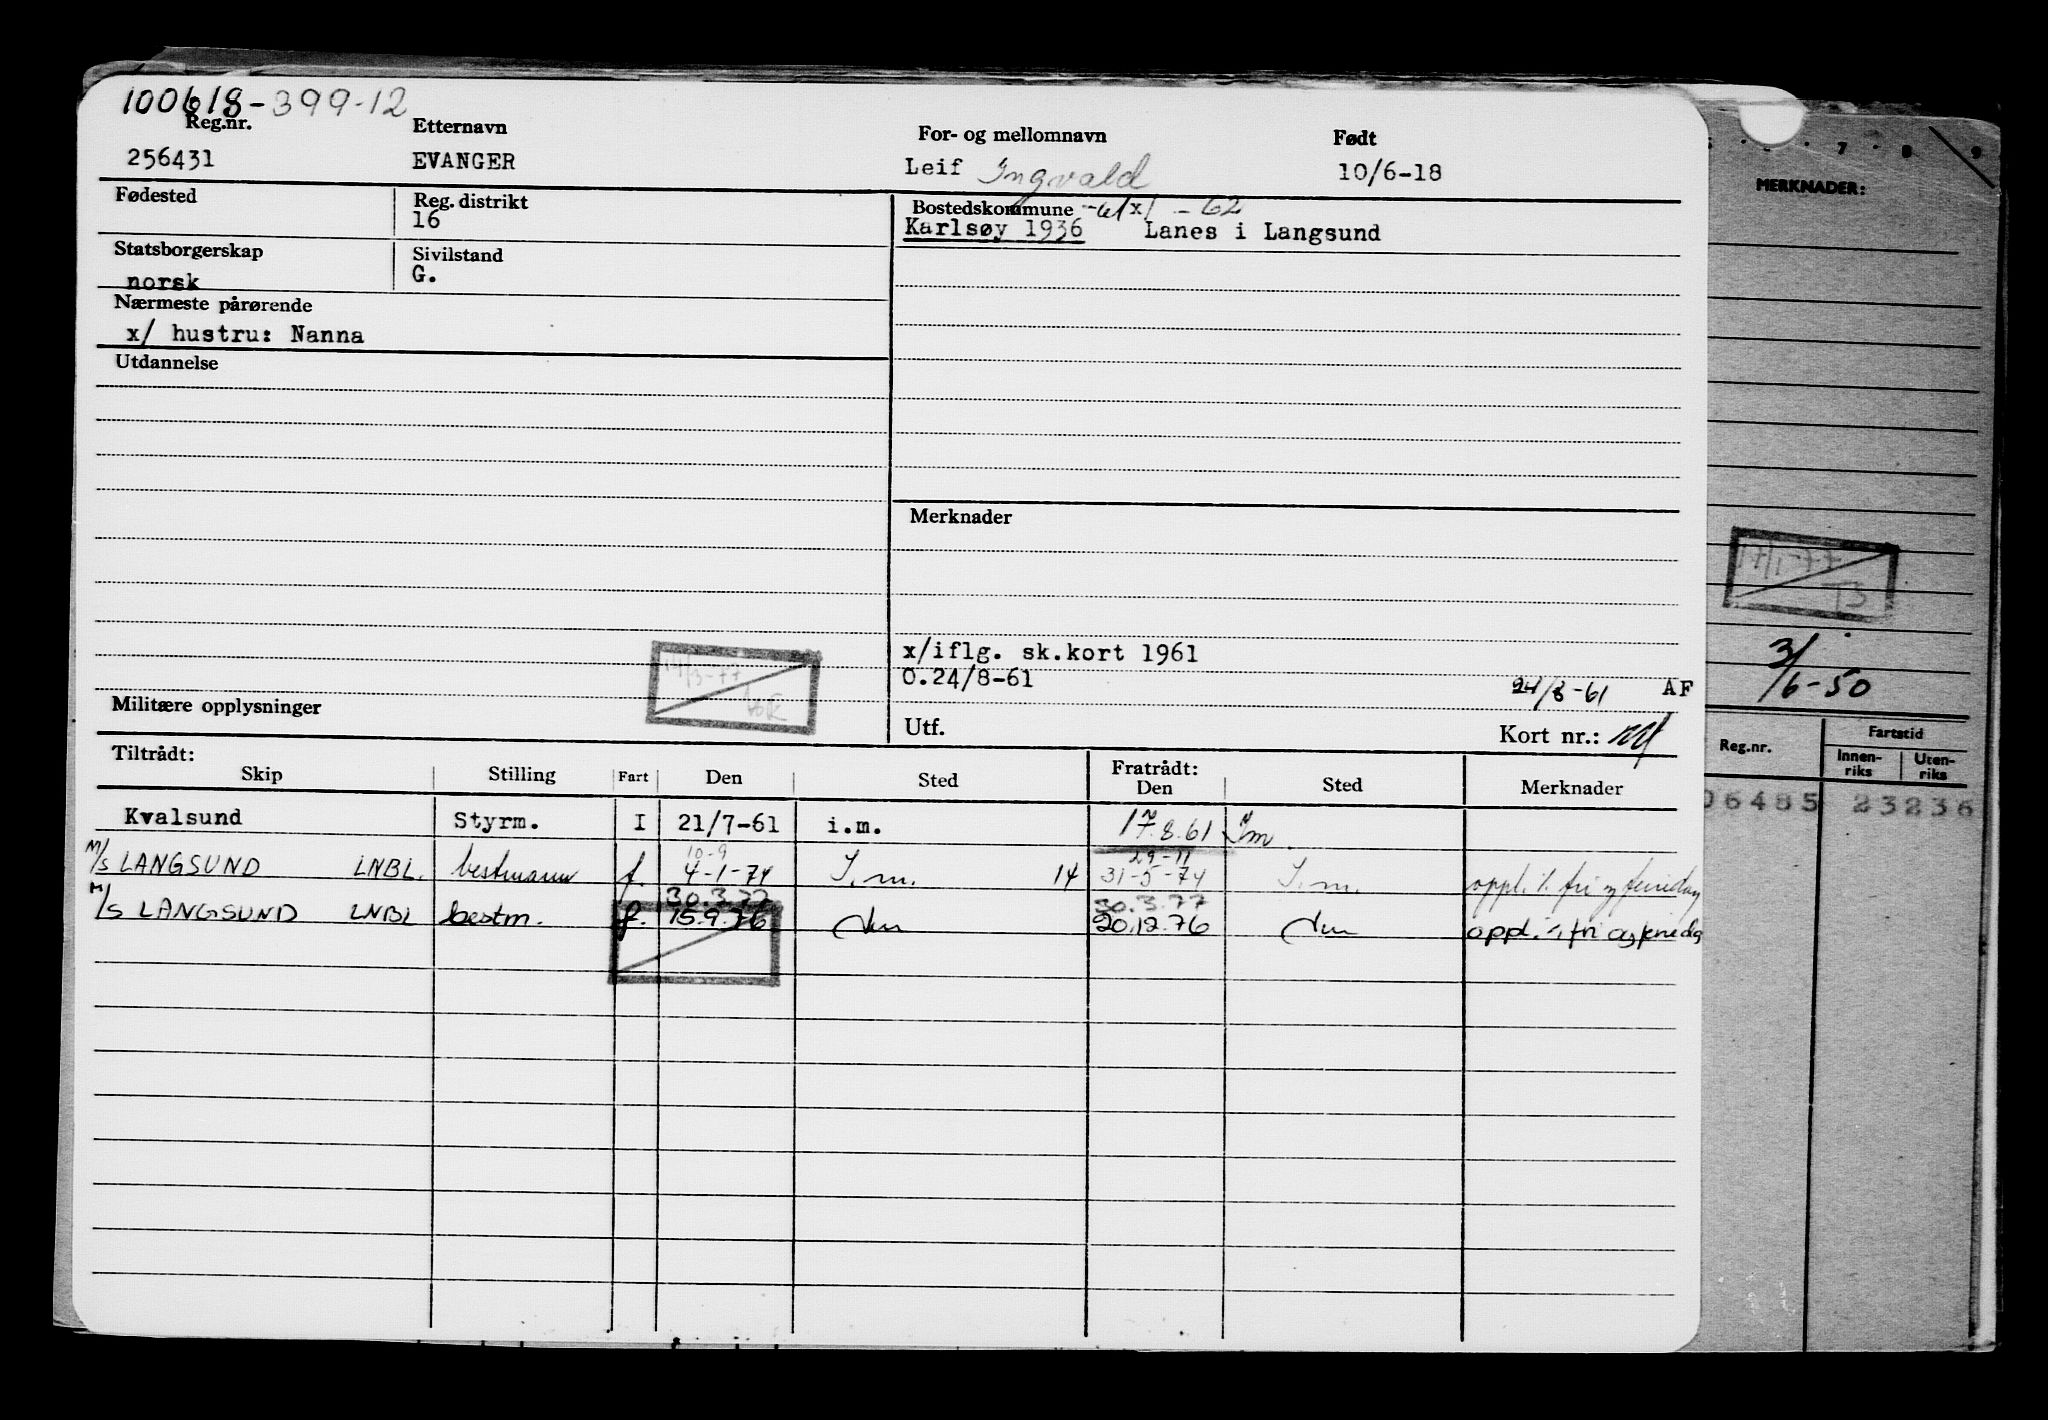 100618-399-12
Reg.nr. Etternavn For- og mellomnavn Født
256431 EVANGER Leif Ingvald 10/6-18
Fødested Reg. distrikt Bostedskommune -61 x/ -62
16 Karlsøy 1936 Lanes i Langsund
Statsborgerskap Sivilstand
norsk G.
Nærmeste pårørende
x/ hustru: Nanna
Utdannelse
Merknader
x/iflg. sk.kort 1961
0.24/8-61 24/8-61 AF
14/3-77
Militære opplysninger Utf. Kort nr.:
Tiltrådt: Fratrådt:
Skip Stilling Fart Den Sted Den Sted Merknader
Kvalsund Styrm. I 21/7-61 i.m. 17.8.61 Im.
10-9 29-11
M/S LANGSUND LNBL. bestmann f. 4-1-74 I.m. 14 31-5-74 I.m. oppl. i. fri og feriedag
30.3.77 30.3.77
M/S LANGSUND LNBL bestm. f. 15.9.76 20.12.76 oppl. i. fri og feriedg
7 8 9
MERKNADER:
17/1-77
TS
3/6-50
Reg.nr. Fartstid
Innen-riks Uten-riks
06485 23236